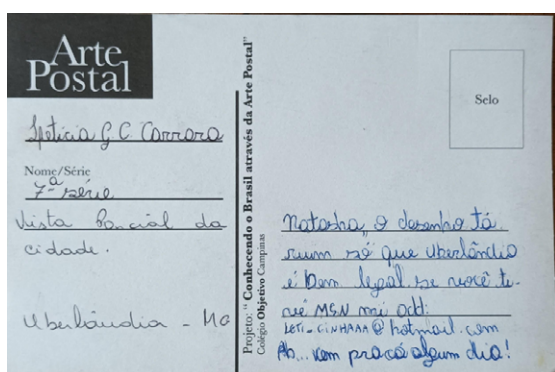 Arte
Postal
Letícia G. C. Carrara
Nome/Série
7ª série
Vista Parcial da
cidade.
Uberlândia - MG
Projeto: "Conhecendo o Brasil através da Arte Postal"
Colégio Objetivo Campinas
Selo
Natasha, o desenho tá
ruim só que Uberlândia
é bem legal. se você ti-
vé MSN mi add:
LETI-CINHAAA@hotmail.com
Ah... vem pra cá algum dia!